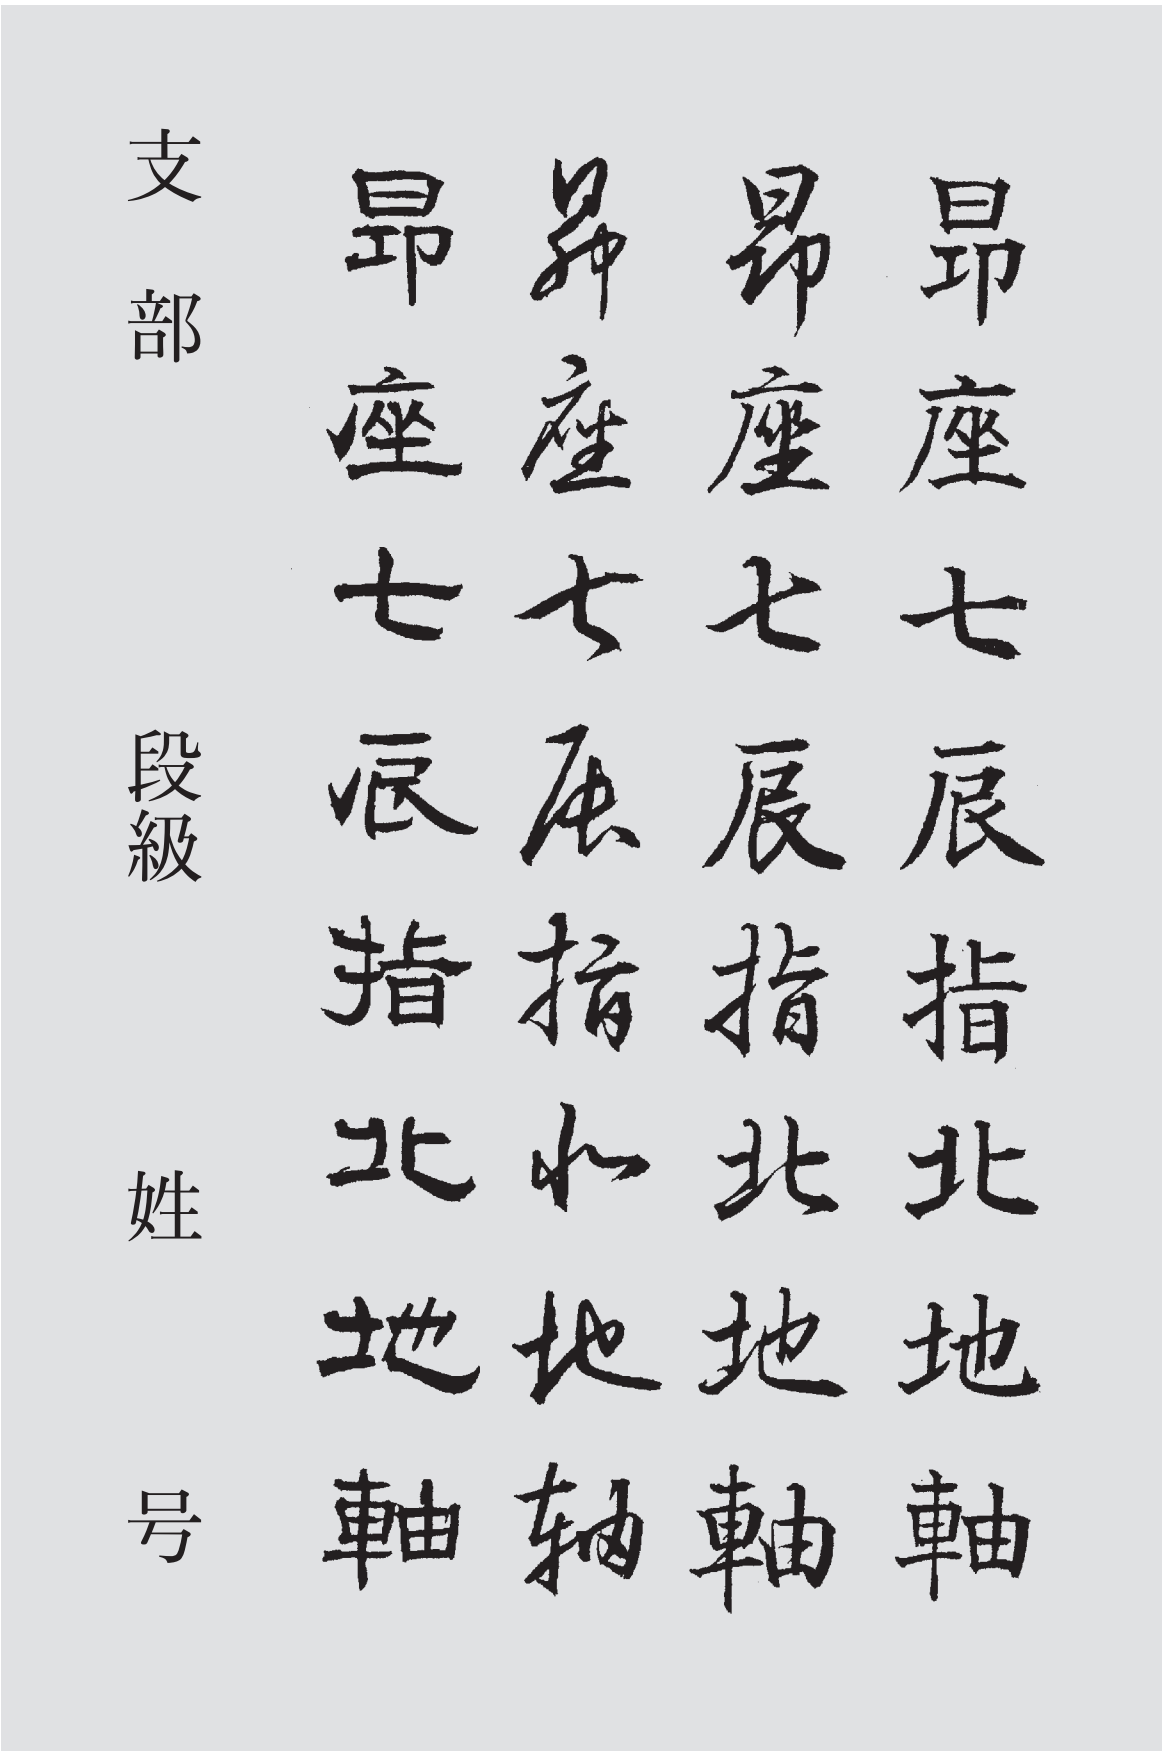 昴座七辰指北地軸
昴座七辰指北地軸
昴座七辰指北地軸
昴座七辰指北地軸
支部 段級 姓号